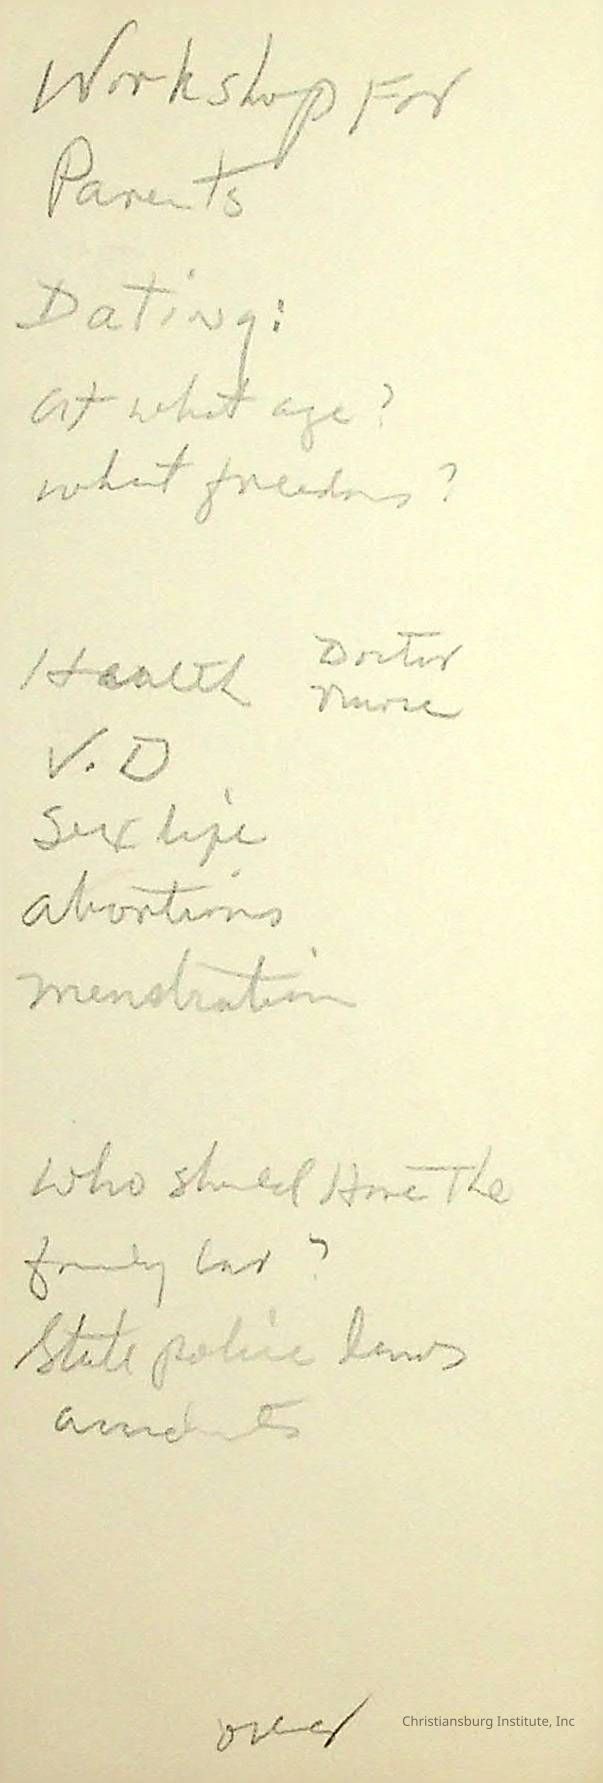 Workshop For
Parents
Dating:
at what age?
what freedoms?
Health Doctor
nurse
V.D
Sex life
abortions
menstration
Who should Have The
family car?
State police laws
accidents
over
Christiansburg Institute, Inc